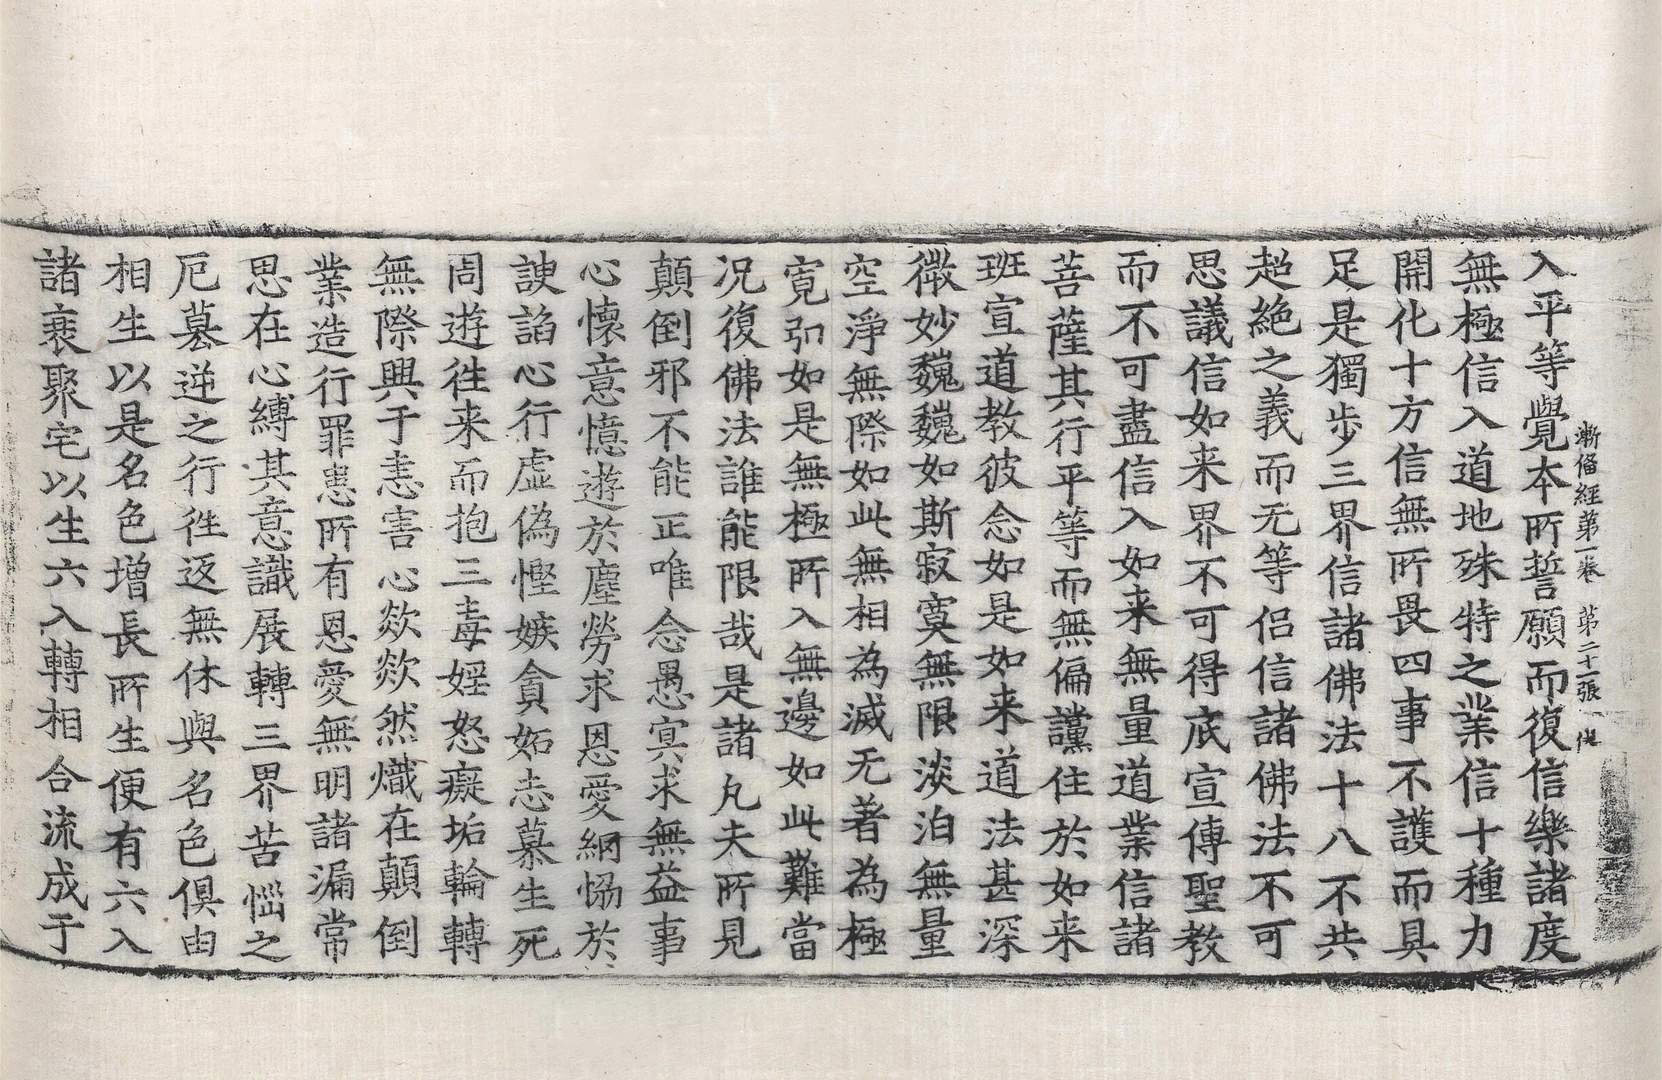 漸俻經第一卷 第二十二張
入平等覺本所誓願而復信樂諸度
無極信入道地殊特之業信十種力
開化十方信無所畏四事不護而具
足是獨步三界信諸佛法十八不共
超絶之義而无等侶信諸佛法不可
思議信如来界不可得底宣傳聖教
而不可盡信入如来無量道業信諸
菩薩其行平等而無偏讜住於如来
班宣道教彼念如是如来道法甚深
微妙巍巍如斯寂寞無限淡泊無量
空淨無際如此無相為滅无著為極
寛弘如是無極所入無邊如此難當
况復佛法誰能限哉是諸凡夫所見
顛倒邪不能正唯念愚冥求無益事
心懷意憶遊於塵勞求恩愛網愶於
諛諂心行虛偽慳嫉貪妬志慕生死
周遊徃来而抱三毒婬怒癡垢輪轉
無際興于恚害心欻欻然熾在顛倒
業造行罪恚所有恩愛無明諸漏常
思在心縛其意識展轉三界苦惱之
厄墓逆之行徃返無休與名色俱由
相生以是名色增長所生便有六入
諸衰聚宅以生六入轉相合流成于